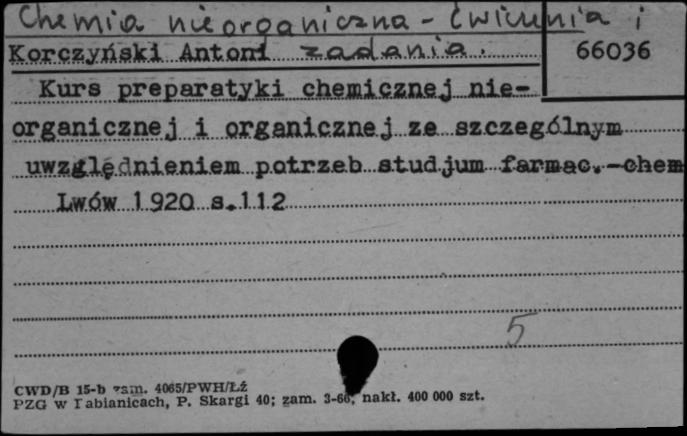 Chemia nieorganiczna - ćwiczenia i
zadania.
Korczyński Antoni
66036
Kurs preparatyki chemicznej nie-
organicznej i organicznej ze szczególnym
uwzględnieniem potrzeb studjum farmac.-chem
Lwów 1920 s.112
5
CWD/B 15-b zam. 4065/PWH/Łź
PZG w Pabianicach, P. Skargi 40; zam. 3-66, nakł. 400 000 szt.